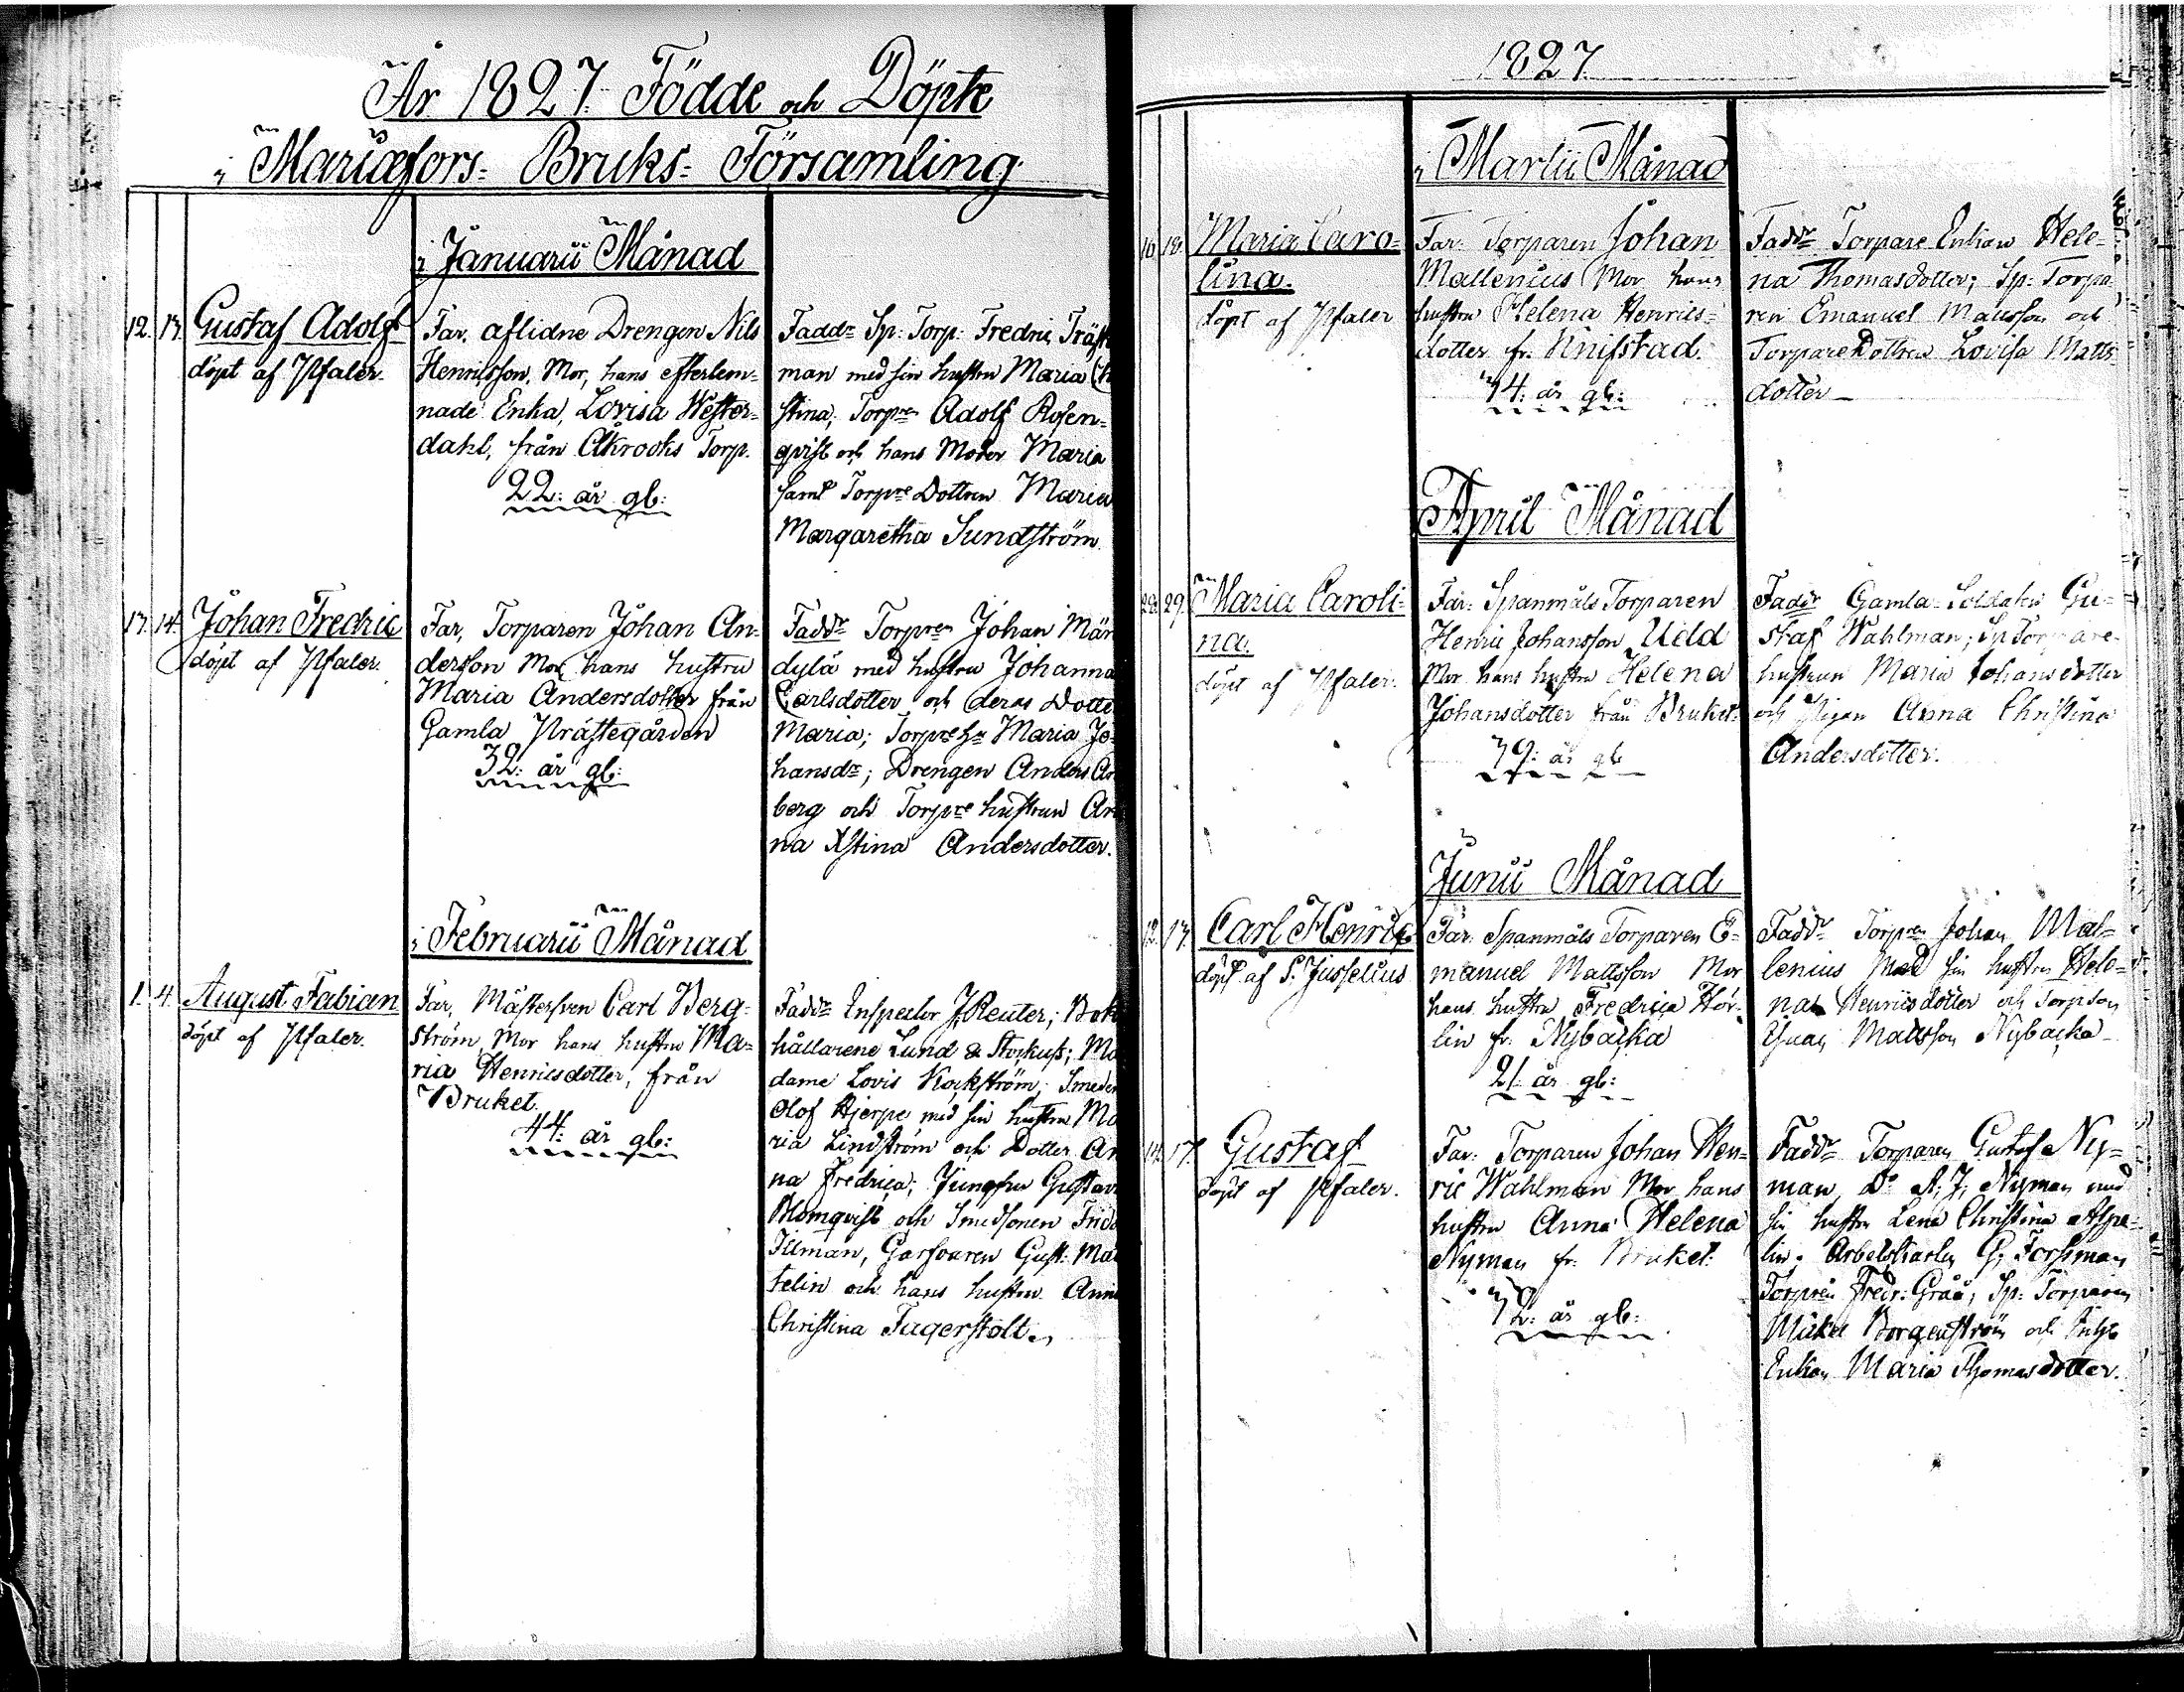 År 1827. Födde och Döpte
i Mariæfors= Bruks= Församling
i Januarii Månad
12. 13. Gustaf Adolf
döpt af Pfaler.
Far. aflidne Drengen Nils
Henricsson, Mor, hans efterlem=
nade Enka, Lovisa Wester=
dahl, från Åkrooks Torp.
22: år gl:
Faddr Sp: Torp: Fredric Träsk
man med sin hustru Maria Ch
stina; Torpn Adolf Rosen=
qvist och hans Moder Maria
samt Torpre Dottren Maria
Margaretha Sundström.
13. 14. Johan Fredric
döpt af Pfaler.
Far, Torparen Johan An=
dersson Mor, hans hustru
Maria Andersdotter från
Gamla Prästegården
32: år gl:
Faddr Torpren Johan Män
dylä med hustru Johanna
Carlsdotter och deras Dotte
Maria; Torpre hu Maria Jo=
hansdr; Drengen Anders
berg och Torpre hustrun An
na Xstina Andersdotter.
i Februarii Månad
1. 4. August Fabian
döpt af Pfaler.
Far, Mästersven Carl Berg=
ström, Mor hans hustru Ma=
ria Henricsdotter, från
Bruket.
44: år gl:
Faddr Inspector J. Reuter; Bok
hållarene Lund & Storkuhs; Ma
dame Lovis Kockström; Smeden
Olof Hjerpe med sin hustru Ma
ria Lindström och Dotter An
na Fredrica; Jungfru Gustav
Blomqvist och Smedsonen Frid
Illman, Garfvaren Gust: Mat
telin och hans hustru Anna
Christina Fagerstolt.
1827.
i Martii Månad
10 18. Maria Caro=
lina.
döpt af Pfaler
Far: Torparen Johan
Mallenius Mor hans
hustru Helena Henrics=
dotter fr. Knifstad.
34: år gl:
Faddr Torpare Enkan Hele=
na Thomasdotter; Sp: Torpa=
ren Emanuel Mattsson och
Torpare Dottren Lovisa Matts
dotter
April Månad
28. 29. Maria Caroli=
na.
döpt af Pfaler.
Far: Spanmåls Torparen
Henric Johansson Udd
Mor hans hustru Helena
Johansdotter från Bruket
39: år gl
Faddr Gamla Soldaten Gu=
staf Wahlman; Sp Torpare
hustrun Maria Johansdotter
och Pigan Anna Christina
Andersdotter.
Junii Månad
12. 13. Carl Henric
döpt af S. Jusselius
Far: Spanmåls Torparen E=
manuel Mattsson Mor
hans hustru Fredrica Hör=
lin fr. Nybacka
21 år gl:
Faddr Torpren Johan Mal=
lenius Med sin hustru Hele=
na Henricsdotter och Torpson
Mattsson Nybacka
14. 17. Gustaf
döpt af Pfaler.
Far: Torparen Johan Hen=
ric Wahlman Mor hans
hustru Anna Helena
Nyman fr. Bruket.
32: år gl:
Faddr Torparen Gustaf Ny=
man, Do A: J: Nyman med
sin hustru Lena Christina Aspe=
lin; Arbetskarlen G; Forssman
Torpren Fredr: Gråå; Sp: Torparen
Mickel Borgenström och
Enkan Maria Thomasdotter.